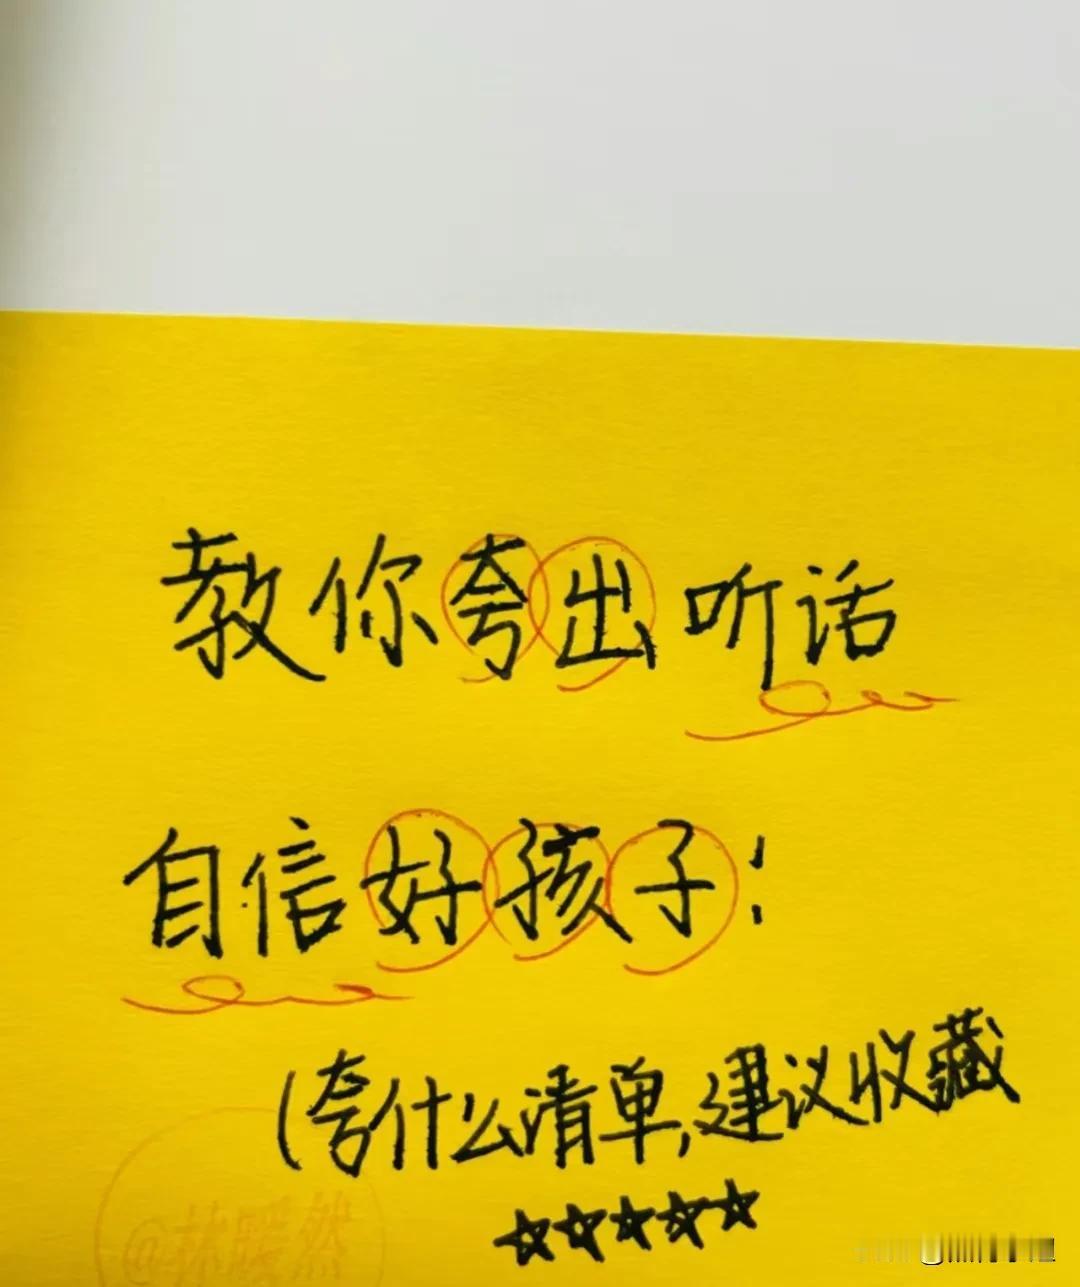 教你夸出听话
自信好孩子！
(夸什么清单,建议收藏
☆☆☆☆☆
@林暖然